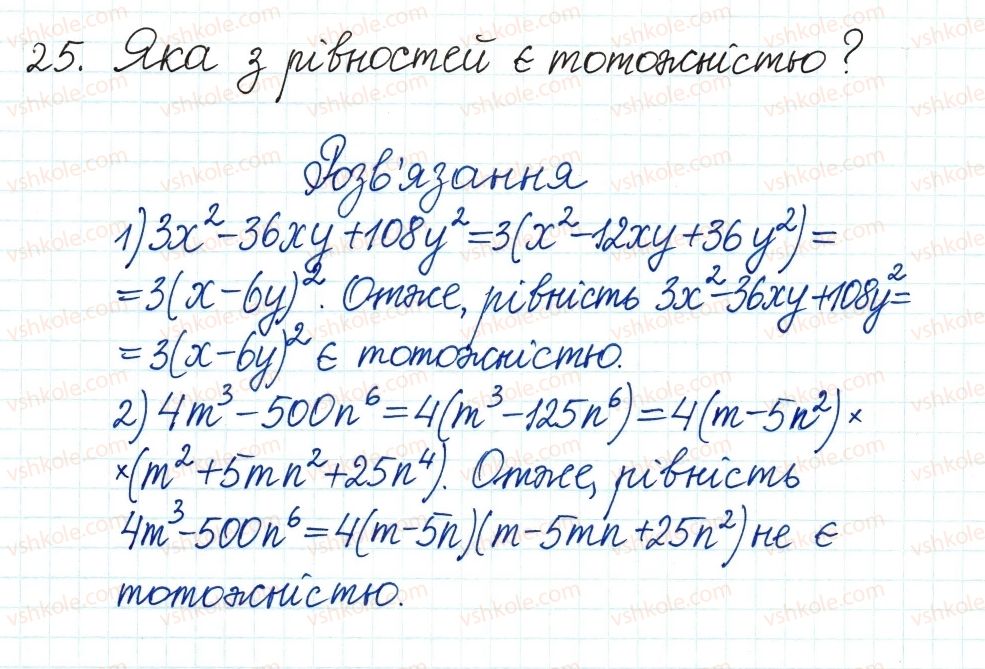 25. Яка з рівностей є тотожністю?
Розв'язання
1) 3x² - 36xy + 108y² = 3(x² - 12xy + 36y²) =
= 3(x - 6y)². Отже, рівність 3x² - 36xy + 108y² =
= 3(x - 6y)² є тотожністю.
2) 4m³ - 500n⁶ = 4(m³ - 125n⁶) = 4(m - 5n²) ×
× (m² + 5mn² + 25n⁴). Отже, рівність
4m³ - 500n⁶ = 4(m - 5n)(m - 5mn + 25n²) не є
тотожністю.